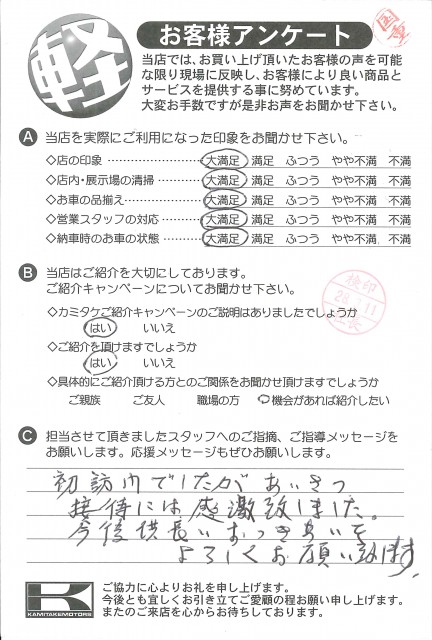 軽
お客様アンケート
当店では、お買い上げ頂いたお客様の声を可能
な限り現場に反映し、お客様により良い商品と
サービスを提供する事に努めています。
大変お手数ですが是非お声をお聞かせ下さい。
A 当店を実際にご利用になった印象をお聞かせ下さい。
◇店の印象 大満足 満足 ふつう やや不満 不満
◇店内・展示場の清掃 大満足 満足 ふつう やや不満 不満
◇お車の品揃え 大満足 満足 ふつう やや不満 不満
◇営業スタッフの対応 大満足 満足 ふつう やや不満 不満
◇納車時のお車の状態 大満足 満足 ふつう やや不満 不満
B 当店はご紹介を大切にしております。
ご紹介キャンペーンについてお聞かせ下さい。
検印
社長
◇カミタケご紹介キャンペーンのご説明はありましたでしょうか
はい いいえ
◇ご紹介を頂けますでしょうか
はい いいえ
◇具体的にご紹介頂ける方とのご関係をお聞かせ頂けますでしょうか
ご親族 ご友人 職場の方 機会があれば紹介したい
C 担当させて頂きましたスタッフへのご指摘、ご指導メッセージを
お願いします。応援メッセージもぜひお願いします。
初訪内でしたがあいさつ
接待には感激致しました。
今後供長いおつきあいを
よろしくお願い致します。
K
KAMITAKEMOTORS
ご協力に心よりお礼を申し上げます。
今後とも宜しくお引き立てご愛顧の程お願い申し上げます。
またのご来店を心からお待ちしております。